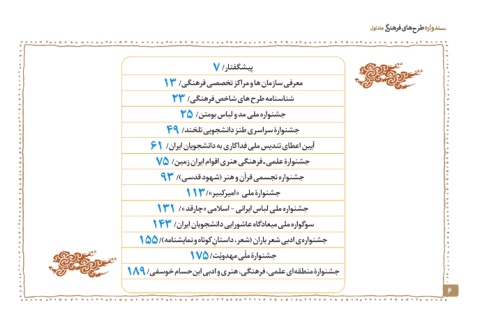 سندواره طرح‌های فرهنگی جلد اول
پیشگفتار/ ۷
معرفی سازمان ها و مراکز تخصصی فرهنگی/ ۱۳
شناسنامه طرح های شاخص فرهنگی/ ۲۳
جشنواره ملی مد و لباس بومتن/ ۲۵
جشنوارۀ سراسری طنز دانشجویی تلخند/ ۴۹
آیین اعطای تندیس ملی فداکاری به دانشجویان ایران/ ۶۱
جشنوارۀ علمی-فرهنگی هنری اقوام ایران زمین/ ۷۵
جشنواره تجسمی قرآن و هنر (شهود قدسی)/ ۹۳
جشنوارۀ ملی «امیرکبیر»/ ۱۱۳
جشنواره ملی لباس ایرانی - اسلامی «چارقد»/ ۱۳۱
سوگواره ملی میعادگاه عاشورایی دانشجویان ایران/ ۱۴۳
جشنواره‌ی ادبی شعر باران (شعر، داستان کوتاه و نمایشنامه)/ ۱۵۵
جشنوارۀ ملّی مهدویّت/ ۱۷۵
جشنوارۀ منطقه‌ای علمی، فرهنگی، هنری و ادبی ابن حسام خوسفی/ ۱۸۹
۶